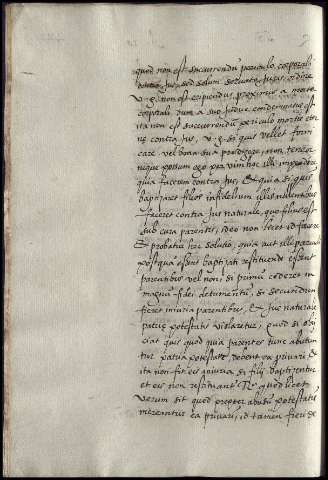 quod non est succurrendũ periculo corporali
contra Jus, sed solum servato Juris ordine
v. g. non est eripiendus proximus a morte
corporali dum a suo Judice condemnatus est
ita non est succurrendũ periculo mortis eter
nę contra Jus, v. g. si quis vellet forni
care vel bona sua prodigare, non teneor
neque possum ego per vim hoc illi impedire
quia facerem contra Jus, Et quia si quis
baptizaret filios infidelium illis invitis
faceret contra Jus naturale, quo filius est
sub cura parentis, ideo non licet id facere
Et probatur hęc solutio, quia aut illi parvuli
postquã essent baptizati restituendi essent
parentibus vel non, si primũ cederet in
magnũ fidei detrimentũ, si secundum
fieret iniuria parentibus, Et Jus naturale
patrię potestatis violaretur, quod si obij
cias quod quia parentes tunc abutun
tur patria potestate, debent ea privari, &
ita non fit eis iniuria si filij baptizentur
et eis non restituant. Rr. quod licet
verum sit quod propter abusũ potestatis
mereantur ea privari, id tamen fieri de